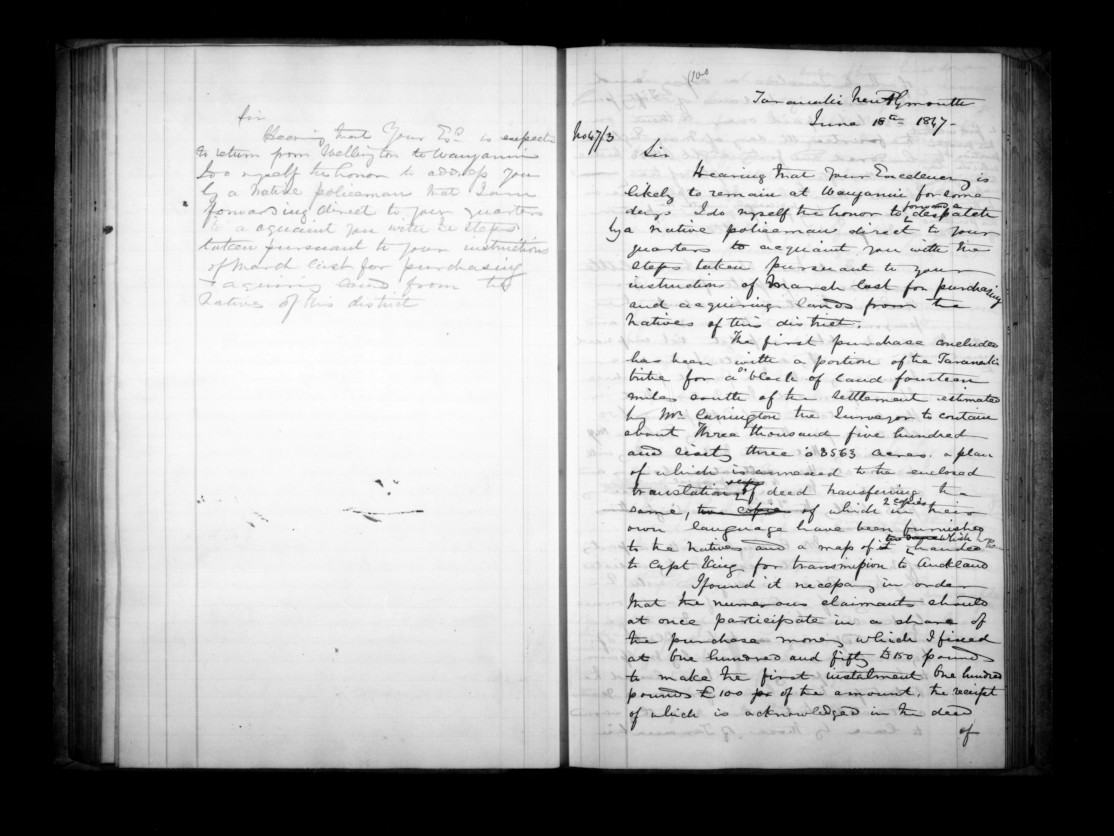 Sir
Hearing that Your Ex.y is expected
to return from Wellington to Wanganui
I do myself the honor to address you
by a native policeman that I am
forwarding direct to your quarters
to aquaint you with the steps
taken pursuant to your instructions
of March last for purchasing
& aquiring land from the
Natives of this district
Taranaki New Plymouth
June 18th 1847-
No 47/3
Sir
Hearing that your Excellency is
likely to remain at Wanganui for some
days I do myself the honor to forward a despatch
by a native policeman direct to your
quarters to acquaint you with the
steps taken pursuant to your
instructions of March last for purchasing
and acquiring lands from the
Natives of this district.
The first purchase concluded
has been with a portion of the Taranaki
tribe for a block of land fourteen
miles south of the settlement estimated
by Mr. Carrington the Surveyor to contain
about Three thousand five hundred
and sixty three 3563 acres. a plan
of which is annexed to the enclosed
translation of deed transferring the
same, two copies of which 2 copies in their
own language have been furnished
to the natives and a map of it handed
to Capt King for transmission to Auckland
I found it necessary in order
that the numerous claimants should
at once participate in a share of
the purchase money which I fixed
at One hundred and fifty £150 pounds
to make the first instalment One hundred
pounds £100 of the amount, the receipt
of which is acknowledged in the deed
of